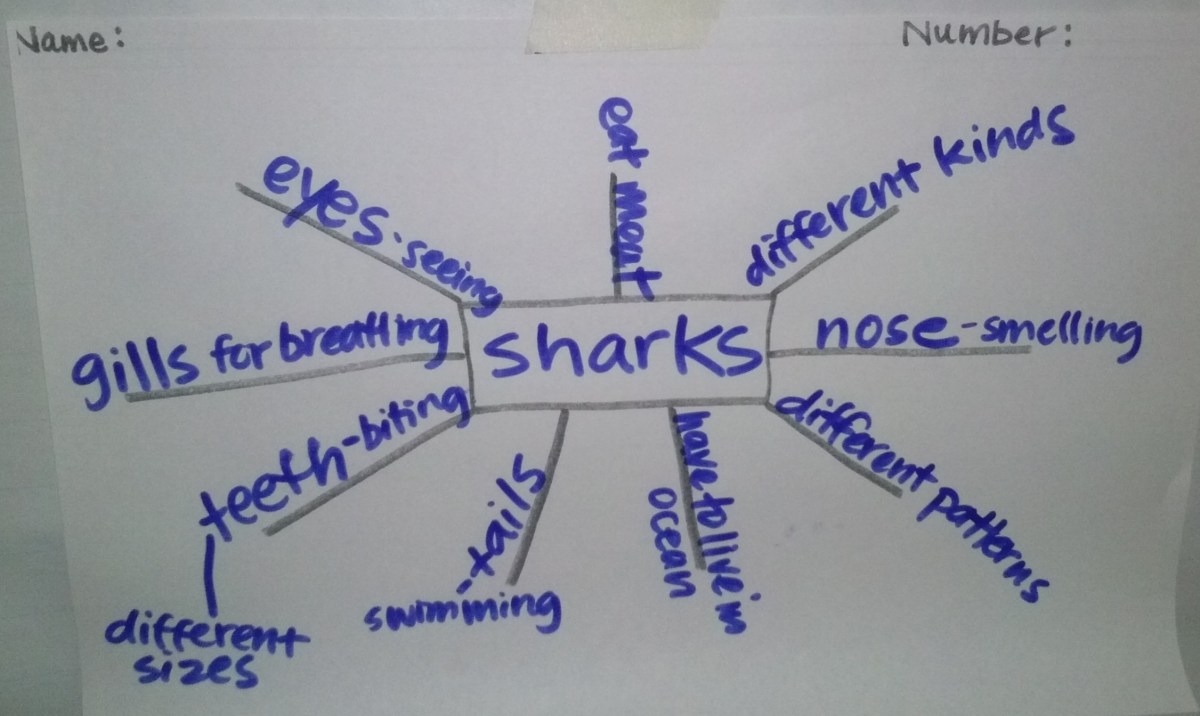 Name:
Number:
eat meat
different kinds
eyes-seeing
sharks
nose-smelling
gills for breathing
teeth-biting
different patterns
tails-
swimming
have to live in
ocean
different
sizes